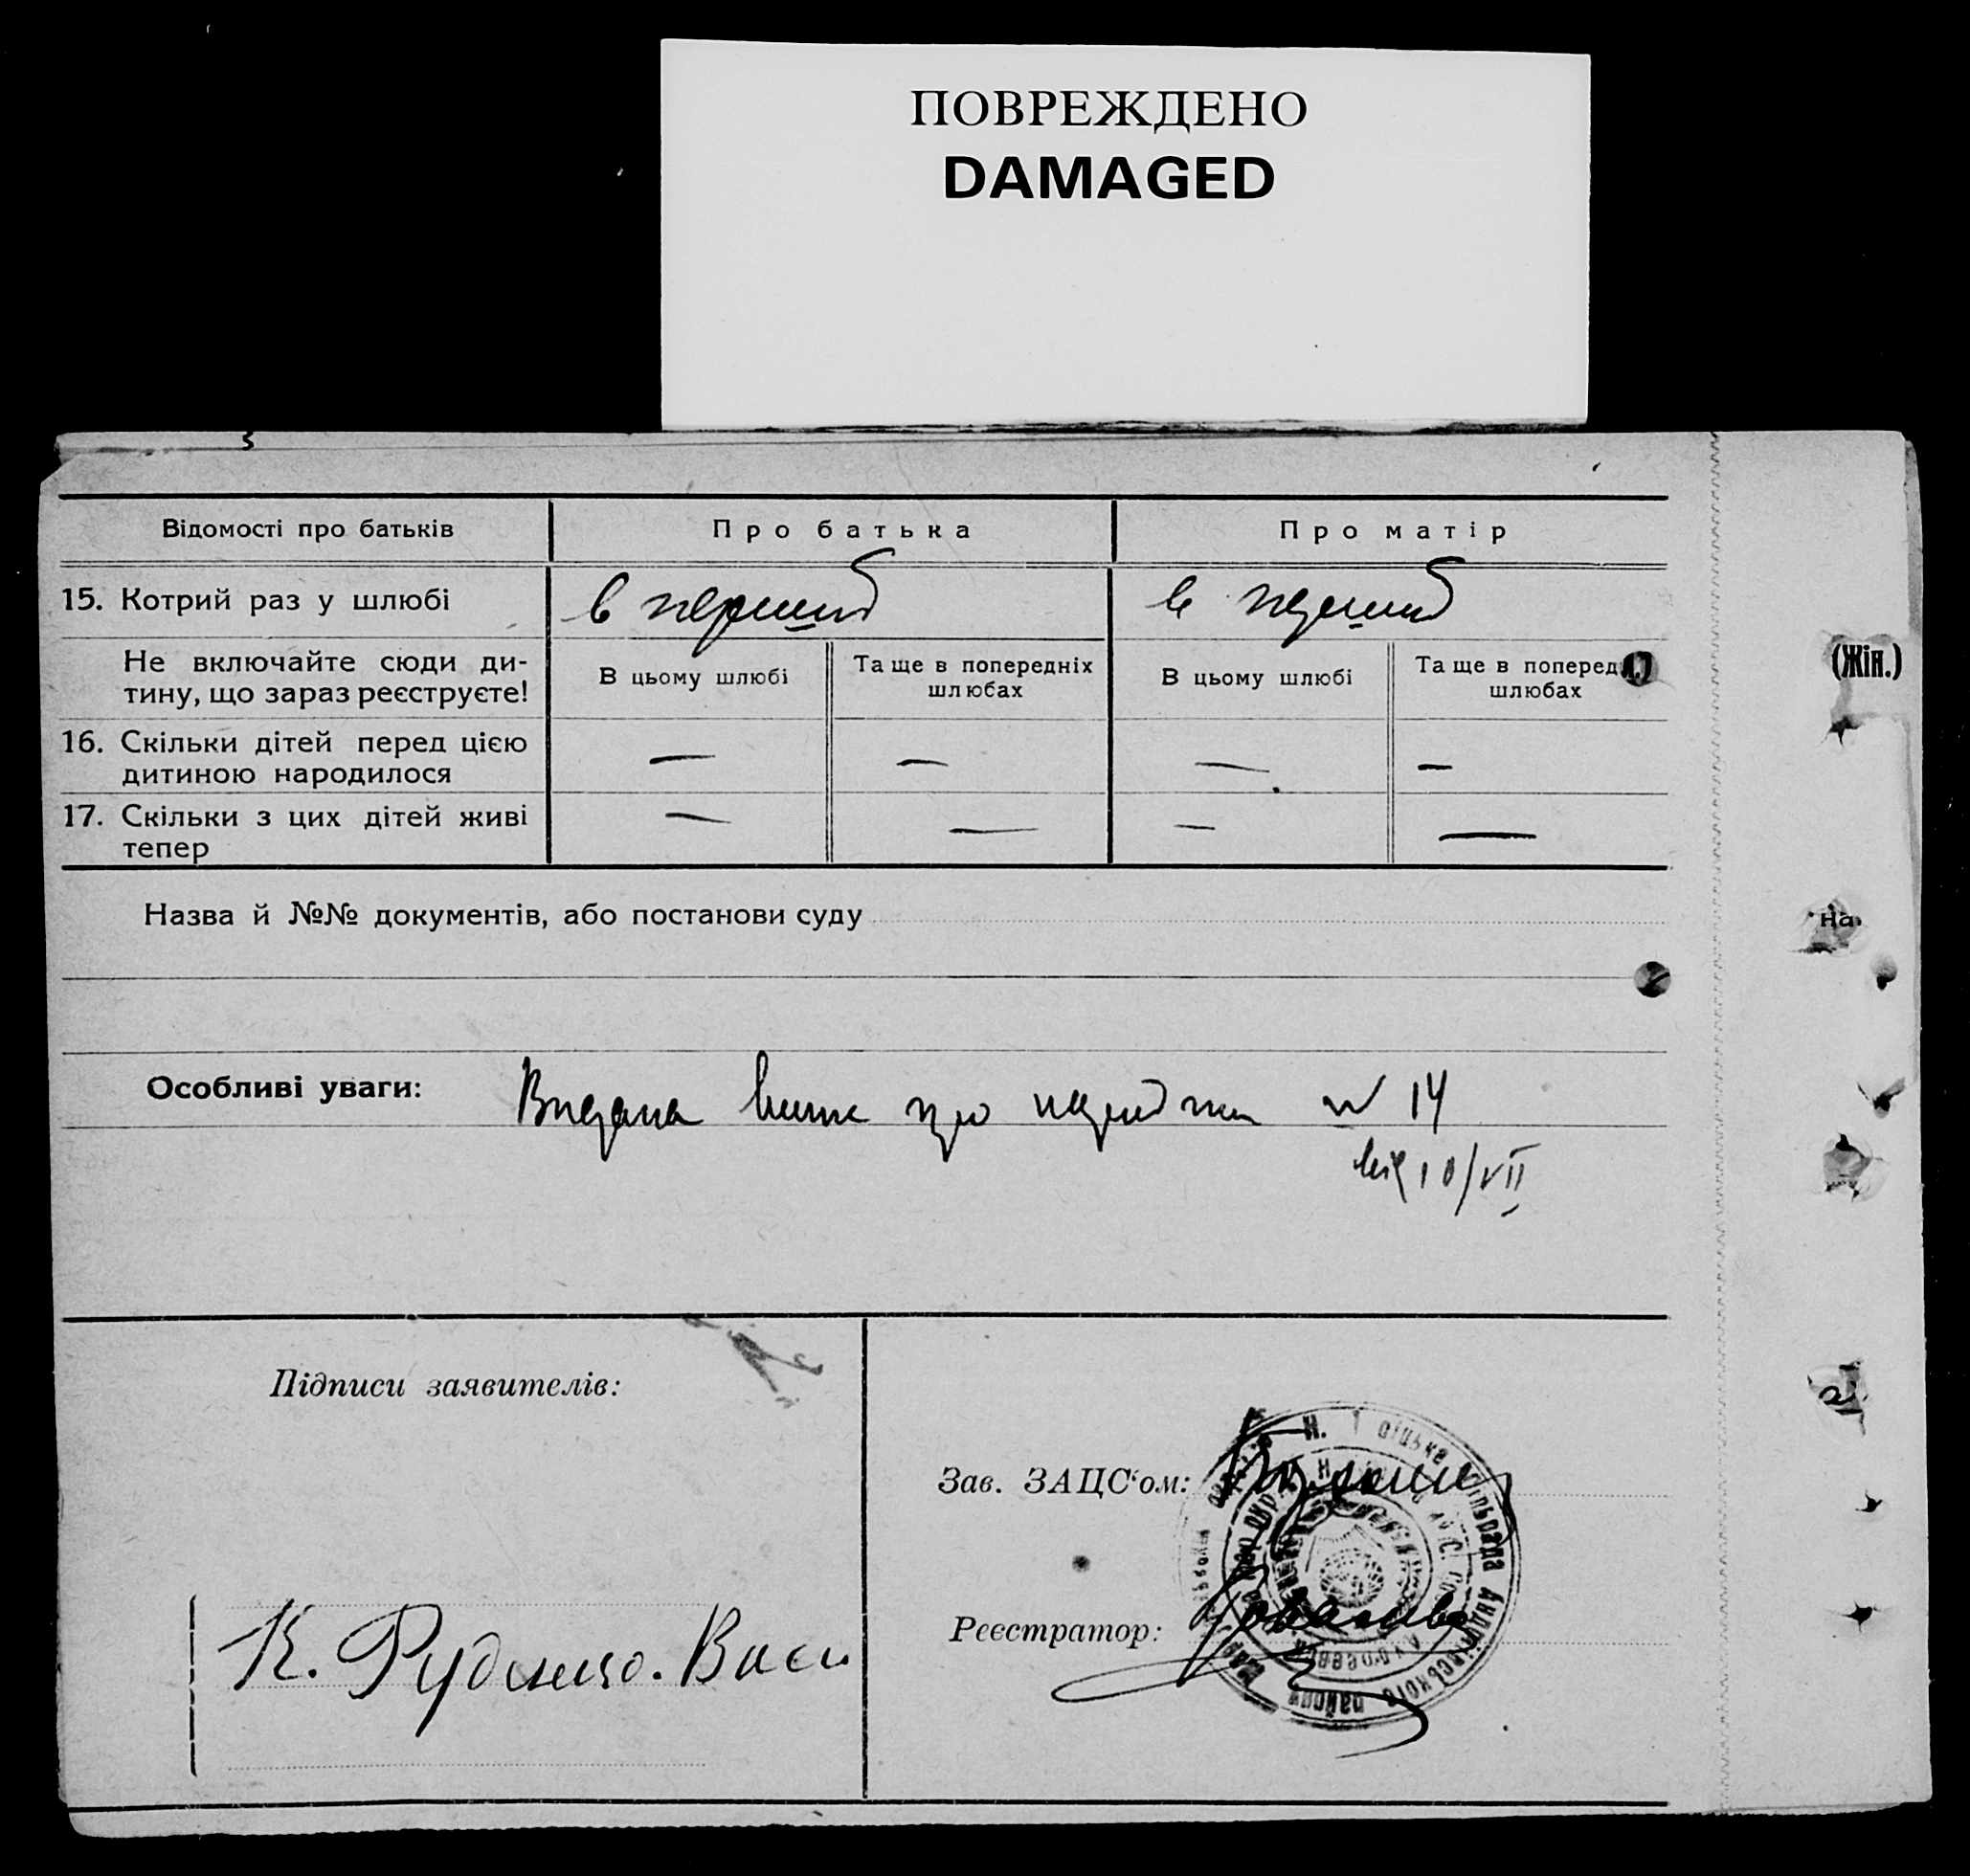 ПОВРЕЖДЕНО
DAMAGED
Відомості про батьків
Про батька
Про матір
15. Котрий раз у шлюбі
в перший
в перший
Не включайте сюди ди-
тину, що зараз реєструєте!
В цьому шлюбі
Та ще в попередніх
шлюбах
В цьому шлюбі
Та ще в поперед
шлюбах
(Жін.)
16. Скільки дітей перед цією
дитиною народилося
— — — —
17. Скільки з цих дітей живі
тепер
— — — —
Назва й №№ документів, або постанови суду
на
Особливі уваги:
Видана про народжен № 14
від 10/VII
Підписи заявителів:
Зав. ЗАЦС'ом:
Реєстратор:
К. Руденко. Васи
сільрада Андріївського району